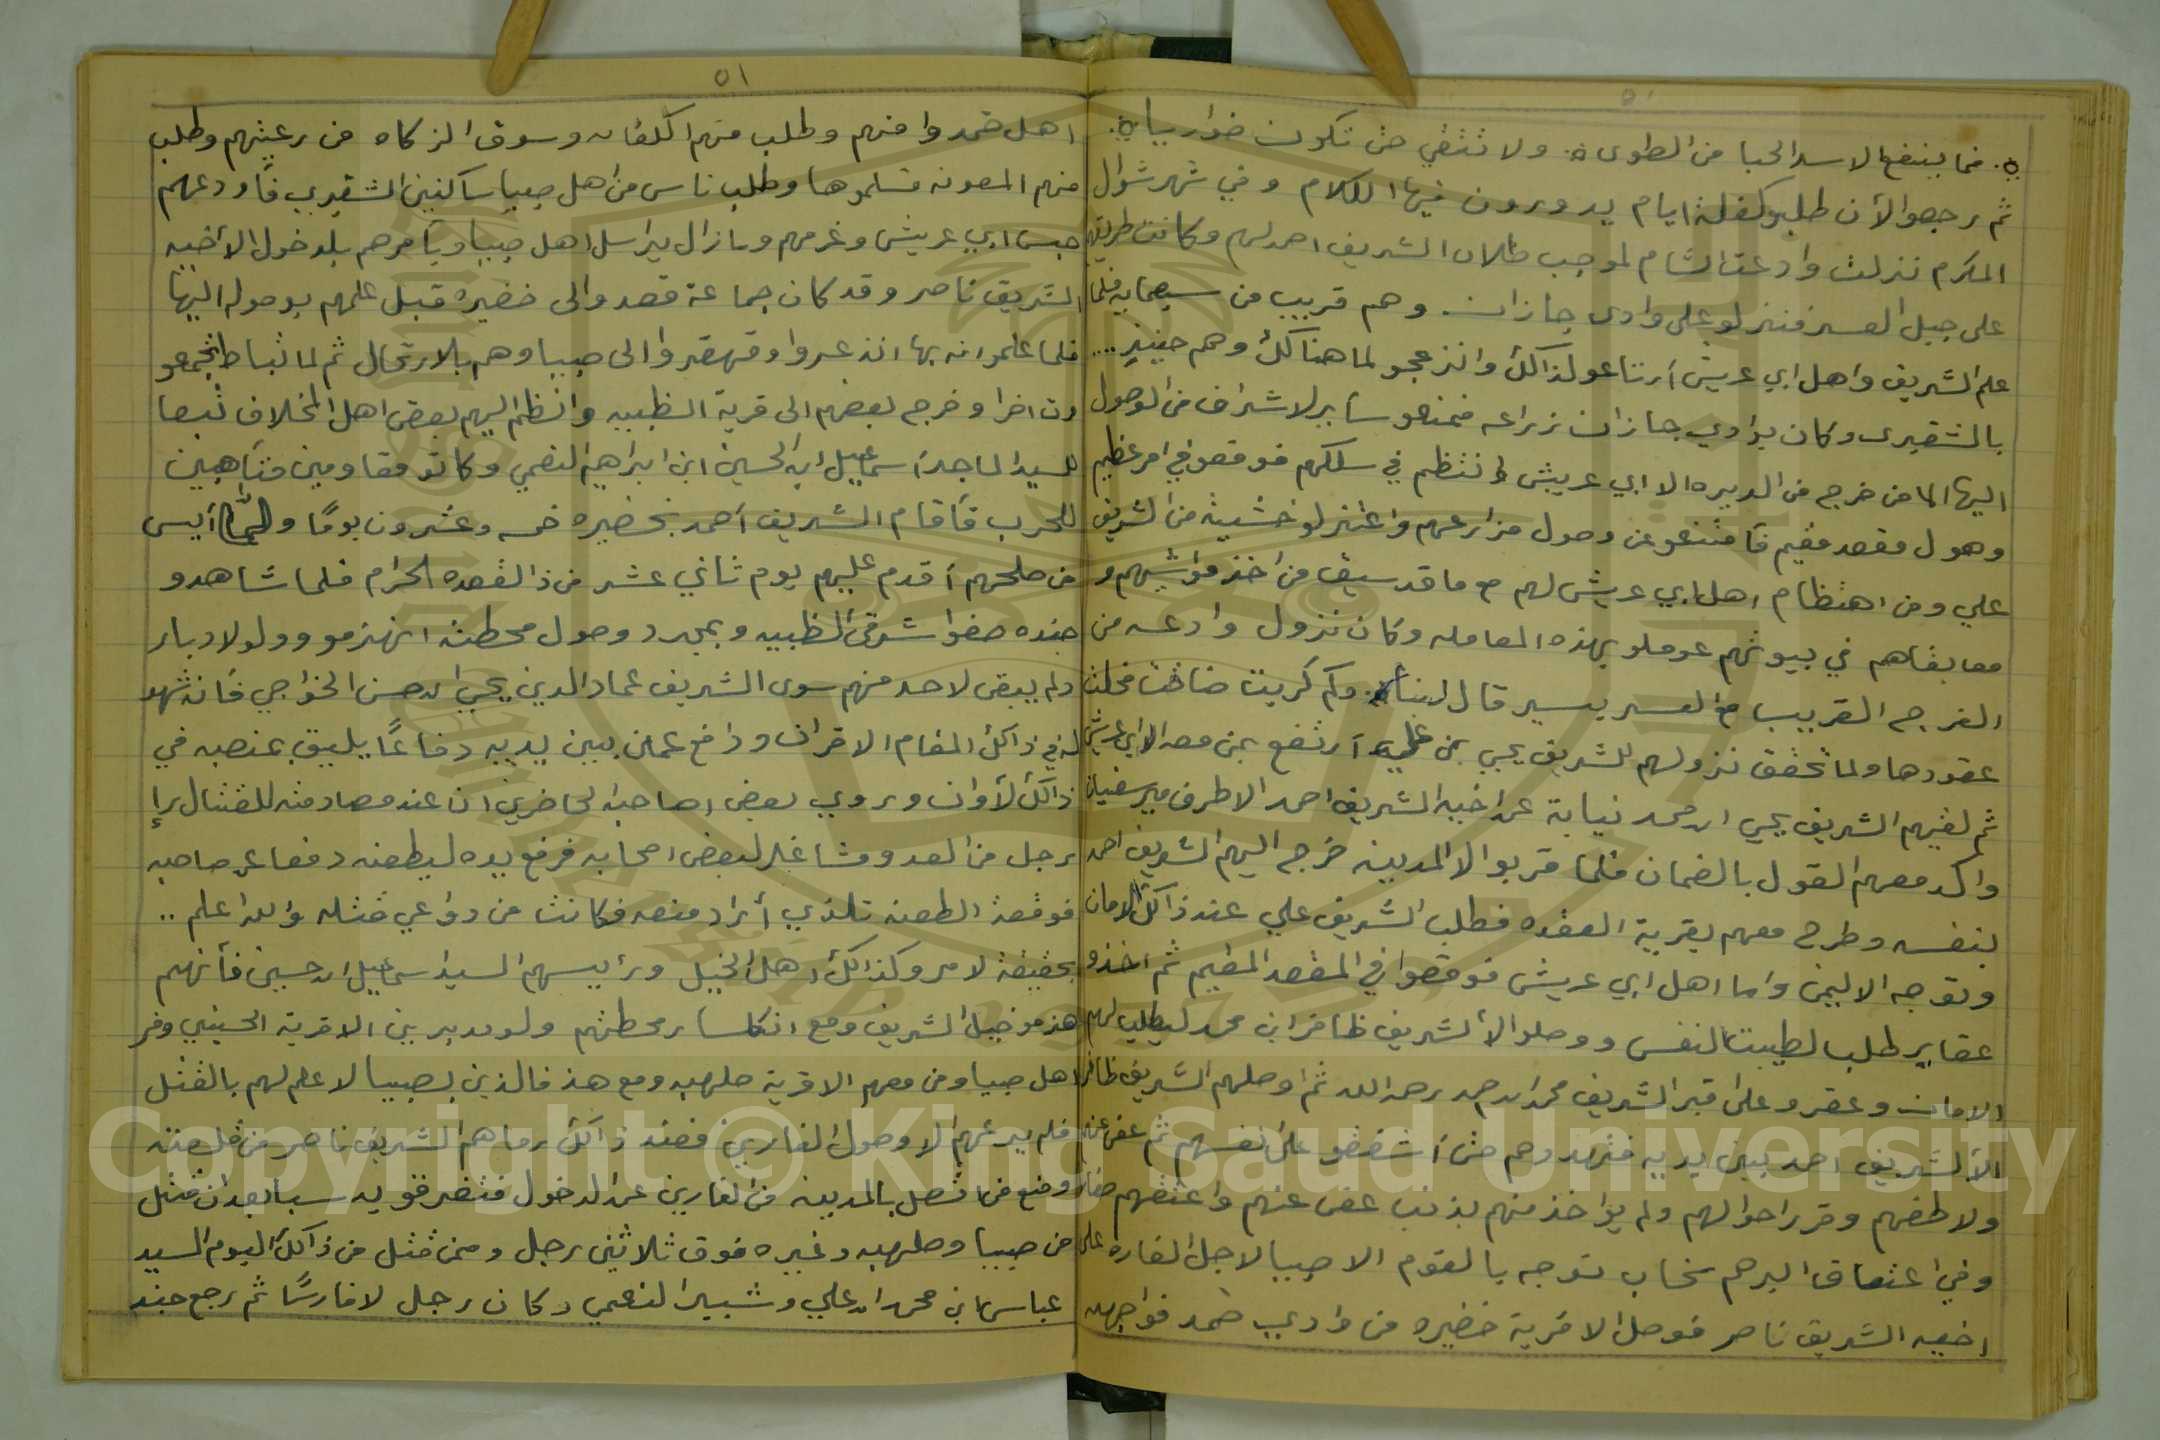 ٥٠
فما ينفع الاسد الحيا من الطوى ولا تتقي حتى تكون ضواريا
ثم رجعوا الأن طلبو كفله ايام يدورون فيها الكلام وفي شهر شوال
المكرم نزلت وادعة الشام لموجب طلاب الشريف احمد لهم وكانت طريقهم
على جبل العسر فنزلو على وادي جازان وهم قريب من سبعمايه فلما
علم الشريف واهل ابي عريش أرتاعو لذالك وانزعجو لما هنالك وهم حينيذ ....
بالشقيرى وكان بوادي جازان زراعه فمنعو ساير الاشراف من الوصول
اليها الا من خرج من الديره الا ابي عريش وانتظم في سلكهم فوقعو في امر عظيم
وهول مقعد مقيم فأمتنعو عن وصول مزارعهم واعتزلو خشيته من الشريف
علي ومن اهتظام اهل ابي عريش لهم مع ما قد سبق من اخذ مواشيهم و
معابقاهم في بيوتهم عوملو بهذه المعامله وكان نزول وادعه من
الفرج القريب مع العسر يسير قال ابنأ وكم كربت ضاقت فحلت
عقودها ولما تحقق نزولهم للشريف يحي بن علي أرتفع بمن معه الا ابي عريش
ثم لقيهم الشريف يحي ابن محمد نيابة عن اخيه الشريف احمد الا طرف مير سفيان
واكد معهم القول بالضمان فلما قربوا الا المدينه خرج اليهم الشريف احمد
بنفسه وطرح معهم بقرية العقده فطلب الشريف علي عند ذالك الامان
وتوجه الا اليمن واما اهل ابي عريش فوقعوا في المقعد المقيم ثم اخذو
عقاير طلب لطيبت النفس ووصلوا الا الشريف ظافر ابن محمد ليطلب لهم
الامان وعقرو على قبر الشريف محمد ابن احمد رحمه الله ثم اوصلهم الشريف ظافر
الأ الشريف احمد بين يديه فتهددوهم حتى أشفقو على نفسهم ثم عفى عنهم
ولاطفهم وقرر احوالهم ولم يؤاخذ منهم بذنب عفى عنهم واعتقهم
وفي اعتقاق البرهم سخاب توجه بالقوم الا صبيا لاجل الغاره على
اخيه الشريف ناصر فوصل الا قرية خضيره من وادي ضمد فواجهه
٥١
اهل ضمد وامنهم وطلب منهم الكلفات وسوق الزكاه من رعيتهم وطلب
منهم المعونه فسلموها وطلب ناس من اهل صبيا ساكنين الشقيري فأودعهم
حبس ابي عريش وغرمهم وما زال يراسل اهل صبيا ويأمرهم بلدخول الأ خيه
الشريف ناصر وقد كان جماعة قصدو الى خضيره قبل علمهم بوصوله اليها
فلما علموا انه بها انذعروا وقهقروا الى صبيا وهم بالارتحال ثم لما ثباط تجمعو
ون اخرا وخرج بعضهم الى قرية الظبيه وانظم اليهم بعض اهل المخلاف تبعا
للسيد الماجد أسماعيل ابن الحسين ابن ابراهيم النعمي وكانو مقاومين متأهبين
للحرب فأقام الشريف أحمد بخضيره خمسه وعشرون يومًا ولمّا أيس
من صلحهم أقدم عليهم يوم ثاني عشر من ذالقعده الحرام فلما شاهدو
جنده صفوا شرقي الظبيه وبمجرد وصول محطته انهزمو وولو لادبار
ولم يبقى لاحد منهم سوى الشريف عماد الدين يحي ابن حسن الخواجي فأنه شهد
له في ذالك المقام الاقران ودافع عمن بين يديه دفاعًا يليق بمنصبه في
ذالك لأوان وروي بعض اصاحبه الحاضرين ان عند مصادمته للقتال رإ
رجل من العدو مشاغلا لبعض اصحابه فرفع يده ليطعنه دفعا عن صاحبه
فوقعة الطعنه تلذي أراد منعه فكانت من دواعي قتله والله اعلم ..
بحقيقة لامر وكذالك أهل الخيل ورأيسهم السيد اسماعيل ابن حسين فأنهم
هذمو خيل الشريف ومع انكسار محطتهم ولو مدبرين الا قرية الحسيني وفر
اهل صبيا ومن معهم الا قرية صلهبه ومع هذ فالذين بصبيا لا علم لهم بالقتل
فلم يرعهم الا وصول الفارين فعند ذالك رماهم الشريف ناصر من قلعته
ومنع من اتصل بالمدينه من الفارين عن الدخول فتفرقو يد سبا بعد ان قتل
من صبيا وصلهبه وغيره فوق ثلاثين رجل وممن قتل من ذالك اليوم السيد
عباس ابن محمد ابن علي وشبير النعمي وكان رجل لا فارسًا ثم رجع جند
Copyright © King Saud University